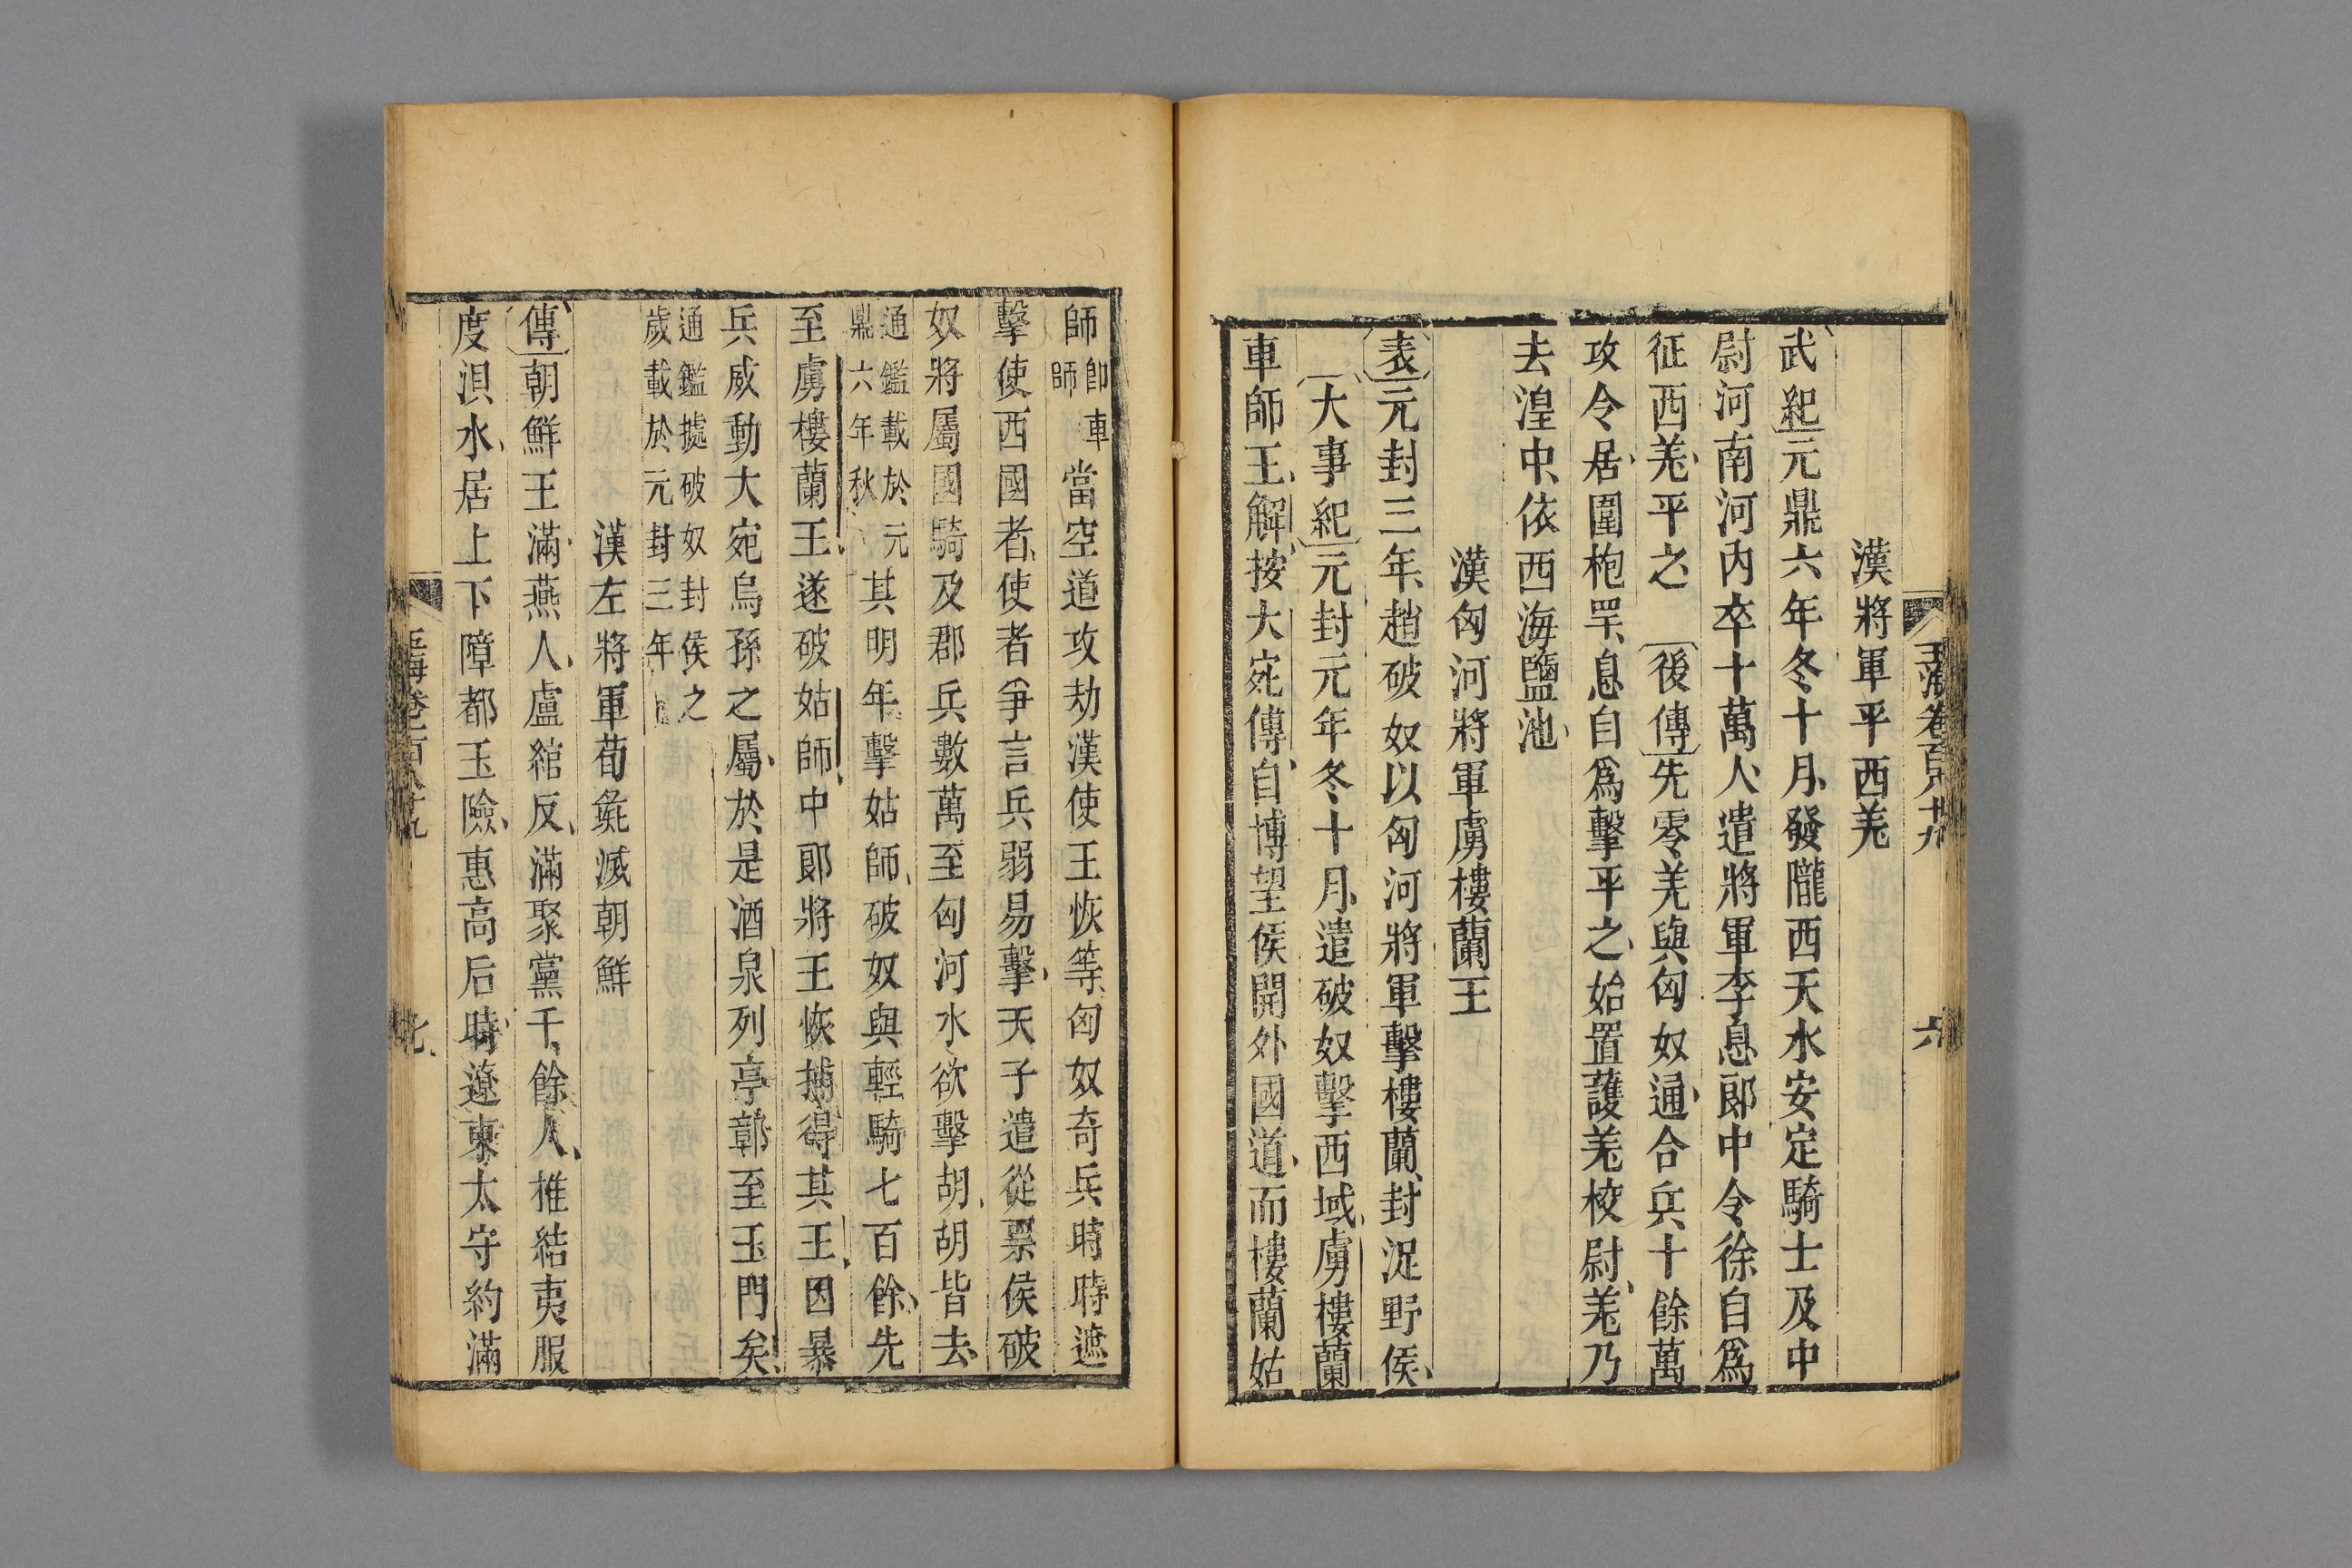 玉海卷百八十九 六
漢將軍平西羌
武紀元鼎六年冬十月發隴西天水安定騎士及中
尉河南河內卒十萬人遣將軍李息郎中令徐自爲
征西羌平之 後傳先零羌與匈奴通合兵十餘萬
攻令居圍枹罕息自爲擊平之始置護羌校尉羌乃
去湟中依西海鹽池
漢匈河將軍虜樓蘭王
表元封三年趙破奴以匈河將軍擊樓蘭封浞野侯
大事紀元封元年冬十月遣破奴擊西域虜樓蘭
車師王解按大宛傳自博望侯開外國道而樓蘭姑
師卽車師當空道攻劫漢使王恢等匈奴奇兵時時遮
擊使西國者使者爭言兵弱易擊天子遣從票侯破
奴將屬國騎及郡兵數萬至匈河水欲擊胡胡皆去
通鑑載於元鼎六年秋其明年擊姑師破奴與輕騎七百餘先
至虜樓蘭王遂破姑師中郎將王恢捕得其王因暴
兵威動大宛烏孫之屬於是酒泉列亭鄣至玉門矣
通鑑據破奴封侯之歲載於元封三年
漢左將軍荀彘滅朝鮮
傳朝鮮王滿燕人盧綰反滿聚黨千餘人椎結夷服
度浿水居上下障都王險惠高后時遼東太守約滿
玉海卷百八十九 七